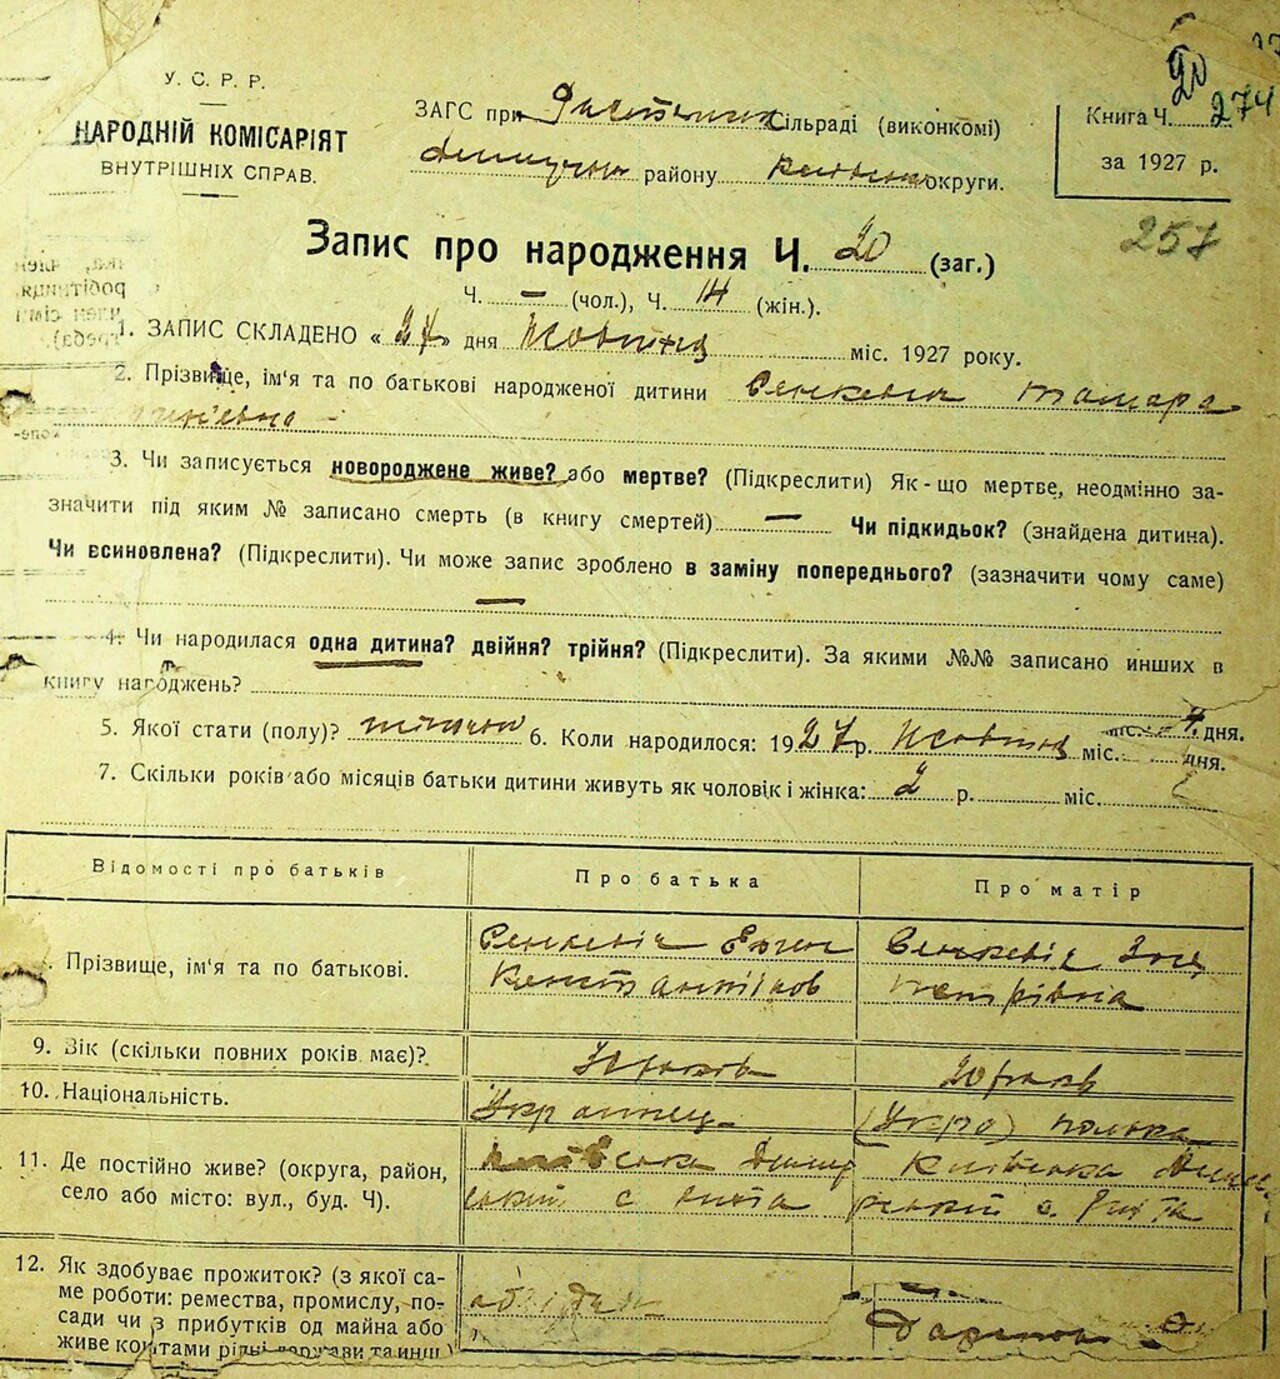 У. С. Р. Р.
НАРОДНІЙ КОМІСАРІЯТ
ВНУТРІШНІХ СПРАВ.
ЗАГС при сільраді (виконкомі)
району округи.
20
274
Книга Ч.
за 1927 р.
257
Запис про народження Ч. 20 (заг.)
Ч. — (чол.), Ч. 14 (жін.).
1. ЗАПИС СКЛАДЕНО « 27 » дня Жовтня міс. 1927 року.
2. Прізвище, ім'я та по батькові народженої дитини Сенкевич Тамара
3. Чи записується новороджене живе? або мертве? (Підкреслити) Як-що мертве, неодмінно за-
значити під яким № записано смерть (в книгу смертей) — Чи підкидьок? (знайдена дитина).
Чи всиновлена? (Підкреслити). Чи може запис зроблено в заміну попереднього? (зазначити чому саме)
—
4. Чи народилася одна дитина? двійня? трійня? (Підкреслити). За якими №№ записано инших в
книгу народжень?
5. Якої стати (полу)? жіночої 6. Коли народилося: 1927 р. Жовтня міс. 4 дня.
міс. дня.
7. Скільки років або місяців батьки дитини живуть як чоловік і жінка: 2 р. міс.
Відомості про батьків Про батька Про матір
Прізвище, ім'я та по батькові. Сенкевіч Евген Сенкевіч Зося
Константінов Петрівна
9. Вік (скільки повних років має)? років 20 років
10. Національність. Українець (Укра) полька
11. Де постійно живе? (округа, район, Київська
село або місто: вул., буд. Ч).
12. Як здобуває прожиток? (з якої са-
ме роботи: ремества, промислу, по-
сади чи з прибутків од майна або
живе коштами рідні держави та инш.)